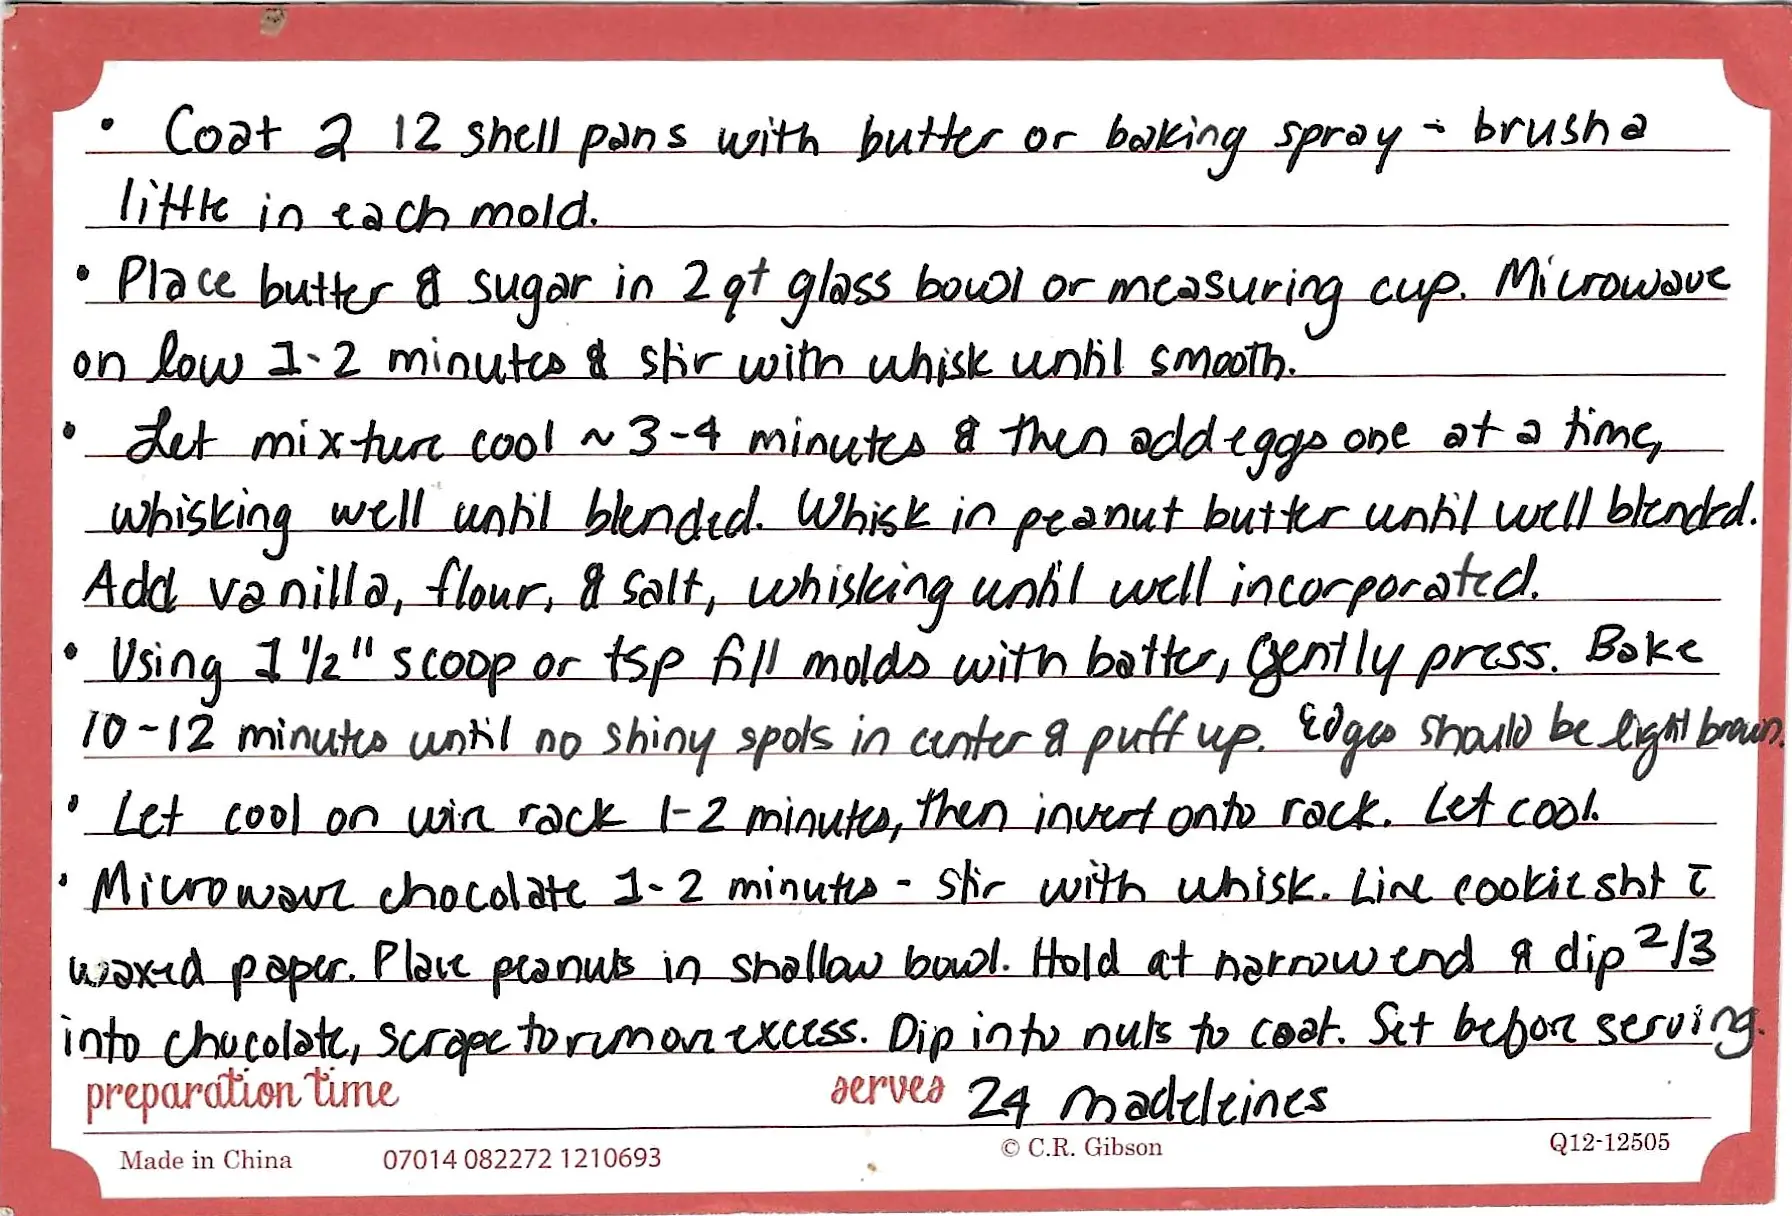 • Coat 2 12 shell pans with butter or baking spray - brush a
little in each mold.
• Place butter & sugar in 2 qt glass bowl or measuring cup. Microwave
on low 1-2 minutes & stir with whisk until smooth.
• Let mixture cool ~ 3-4 minutes & then add eggs one at a time,
whisking well until blended. Whisk in peanut butter until well blended.
Add vanilla, flour, & salt, whisking until well incorporated.
• Using 1 1/2" scoop or tsp fill molds with batter, Gently press. Bake
10-12 minutes until no shiny spots in center & puff up. Edges should be light brown.
• Let cool on wire rack 1-2 minutes, then invert onto rack. Let cool.
• Microwave chocolate 1-2 minutes - stir with whisk. Line cookie sht c̄
waxed paper. Place peanuts in shallow bowl. Hold at narrow end & dip 2/3
into chocolate, scrape to remove excess. Dip into nuts to coat. Set before serving.
preparation time serves 24 madeleines
Made in China 07014 082272 1210693 © C.R. Gibson Q12-12505